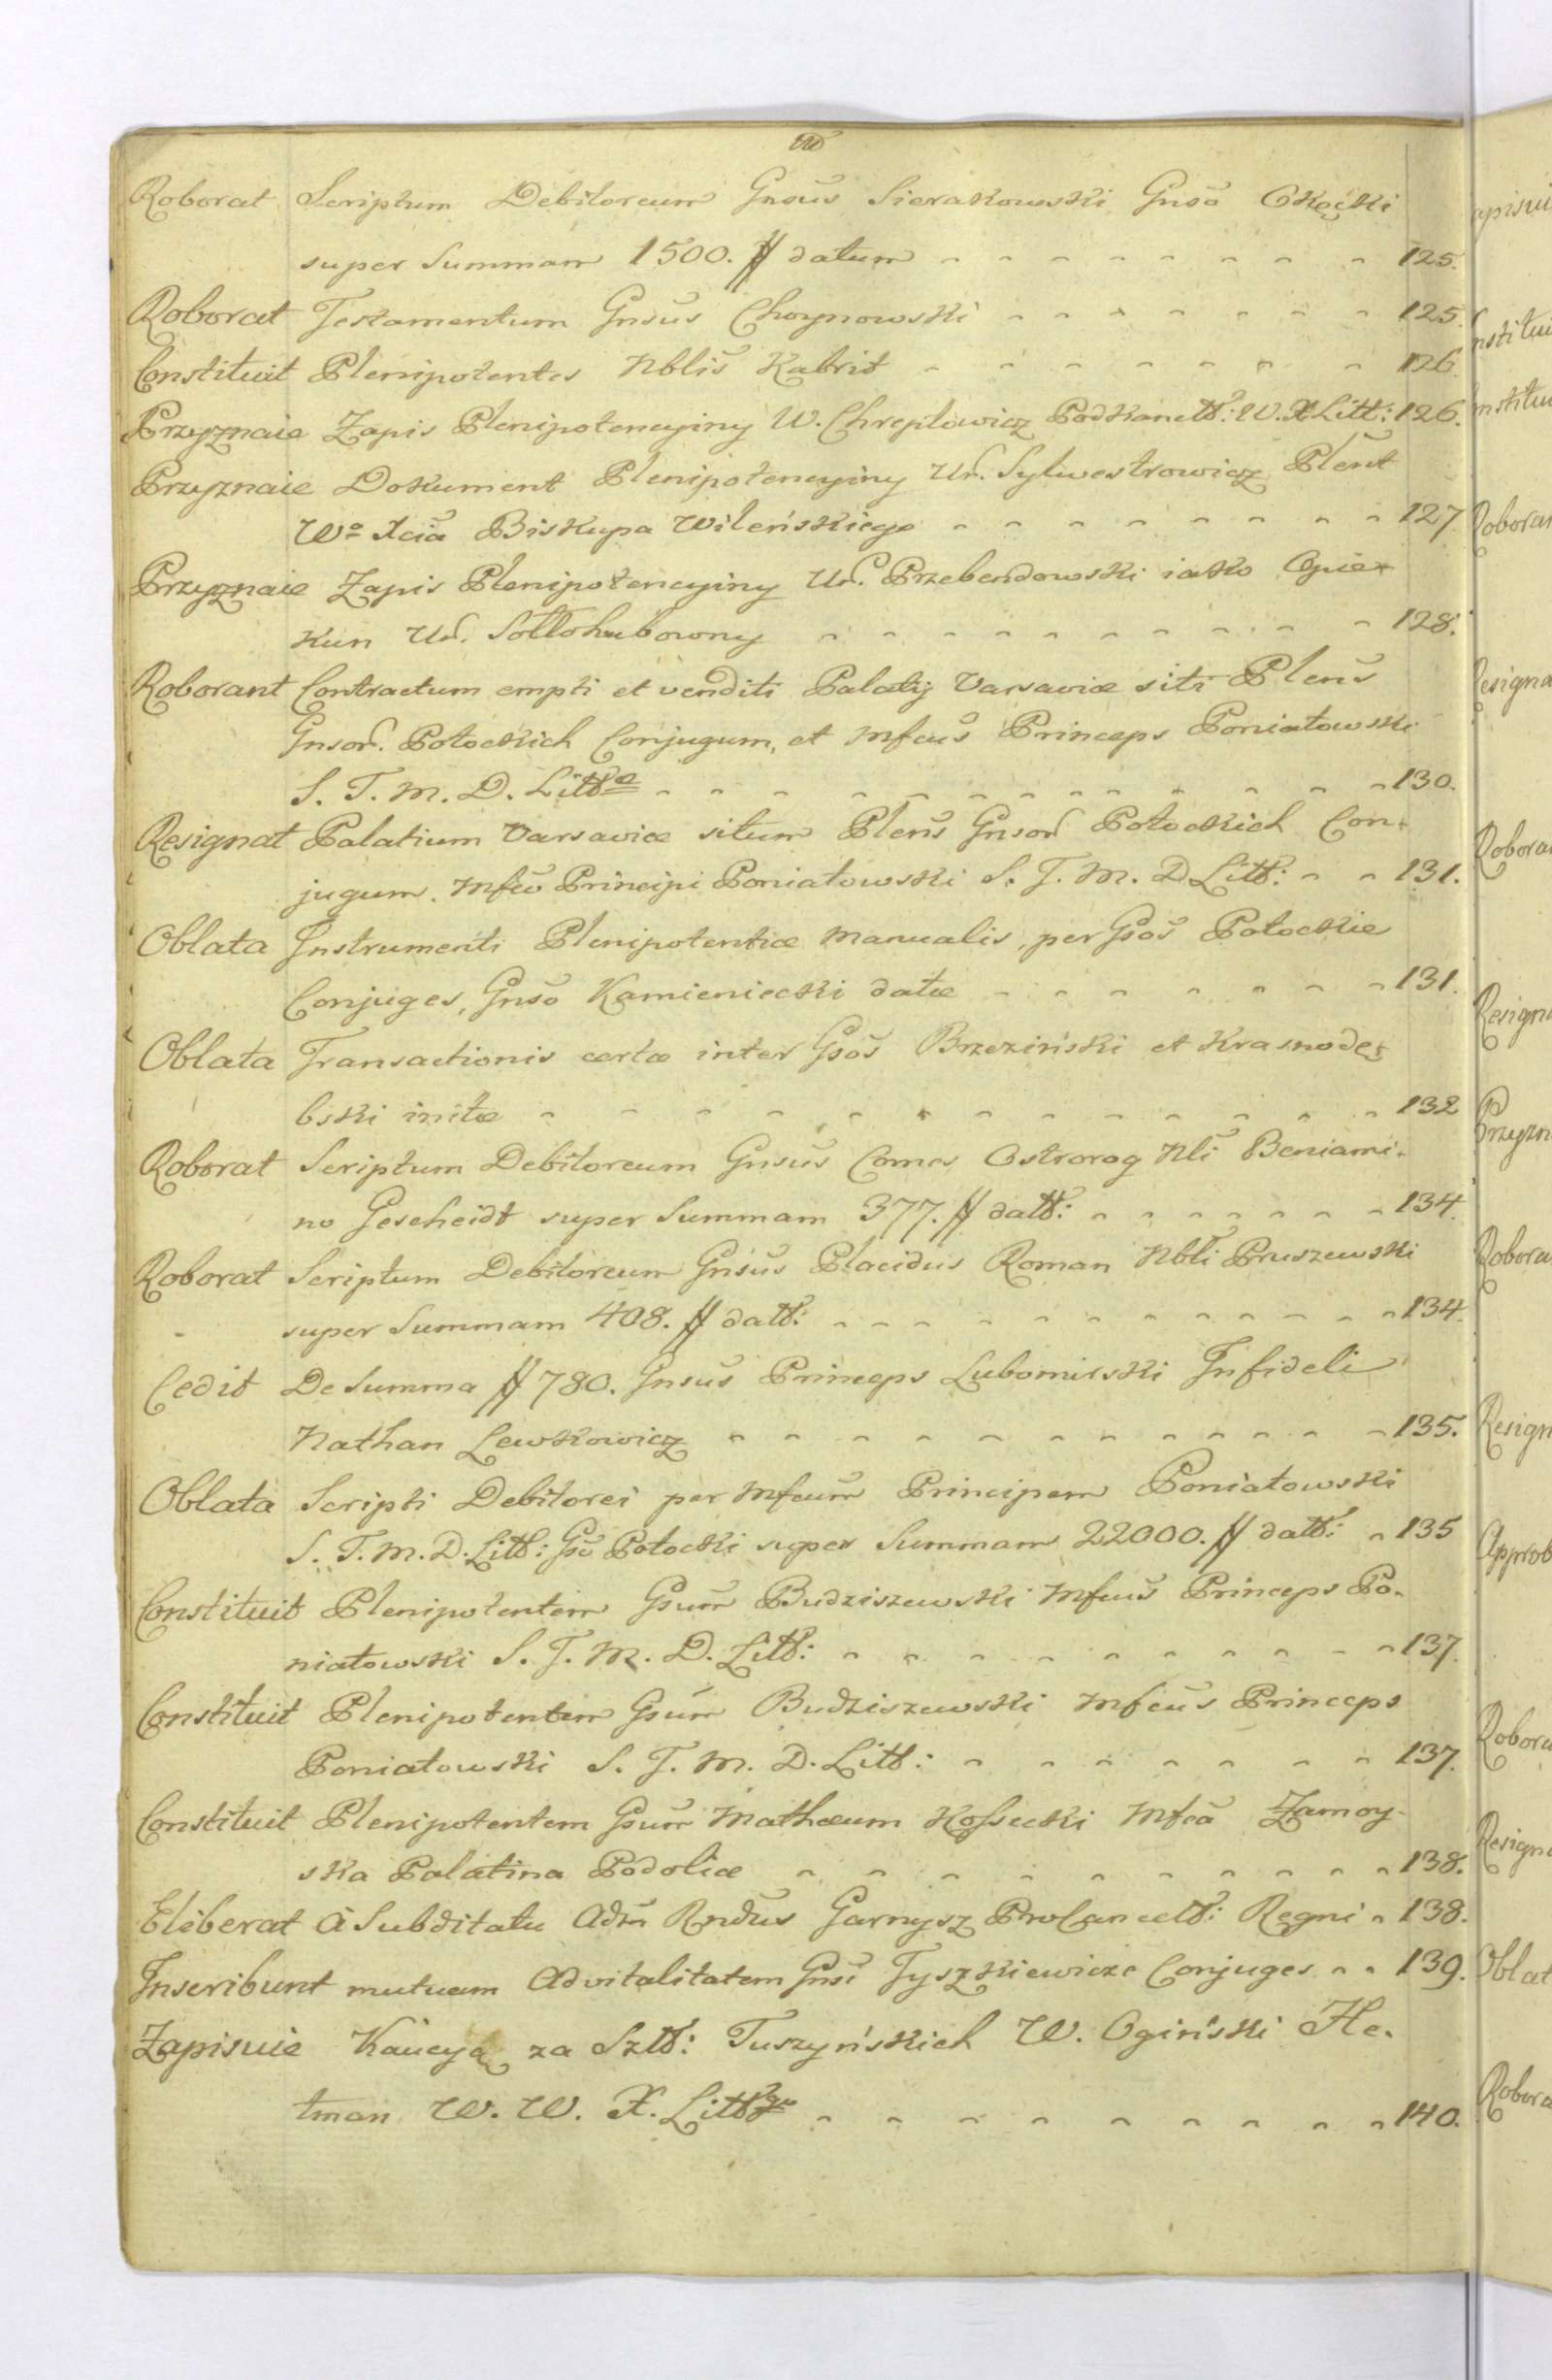 Roborat Scriptum Debitoreum Gnsus Sierakowski Gnso Okęcki
super Summam 1500. ff datum - - - - - - - - 125.
Roborat Testamentum Gnsus Choynowski - - - - - - - 125.
Constituit Plenipotentes Nblis Kabrit - - - - - - - 126.
Przyznaie Zapis Plenipotencyiny W. Chreptowicz PodKanclł: W. X Litt: 126.
Przyznaie Dokument Plenipotencyiny Ur. Sylwestrowicz Plent
Wo Xcia Biskupa Wileńskiego - - - - - - - - 127
Przyznaie Zapis Plenipotencyiny Ur. Przebendowski iako Opie-
kun Ur. Sołłohubowny - - - - - - - - - 128.
Roborant Contractum empti et venditi Palatij Varsaviæ siti Plens
Gnsor. Potockich Conjugum, et Mfcus Princeps Poniatowski
S. T. M. D. Littæ - - - - - - - - - - - 130.
Resignat Palatium Varsaviæ situm Plens Gnsor Potockich Con-
jugum. Mfco Principi Poniatowski S. T. M. D Litt: - - 131.
Oblata Instrumenti Plenipotentiæ Manualis, per Gsos Potockie
Conjuges, Gnso Kamieniecki datæ - - - - - - - 131.
Oblata Transactionis certæ inter Gsos Brzeziński et Krasnode-
bski initæ - - - - - - - - - - - - - 132
Roborat Scriptum Debitoreum Gnsus Comes Ostrorog Nli Beniami-
no Gescheidt super Summam 377. ff datt: - - - - - - - 134.
Roborat Scriptum Debitoreum Gnsus Placidus Roman Nbli Pruszewski
super Summam 408. ff datt: - - - - - - - - - - 134.
Cedit De Summa ff 780. Gnsus Princeps Lubomirski Infideli
Nathan Lewkowicz - - - - - - - - - - - 135.
Oblata Scripti Debitorei per Mfcum Principem Poniatowski
S. T. M. D. Litt: Gso Potocki super Summam 22000. ff datt: - 135
Constituit Plenipotentem Gsum Budziszewski Mfcus Princeps Po-
niatowski S. T. M. D. Litt: - - - - - - - - - 137.
Constituit Plenipotentem Gsum Budziszewski Mfcus Princeps
Poniatowski S. T. M. D. Litt: - - - - - - - 137.
Constituit Plenipotentem Gsum Mathæum Kossecki Mfca Zamoy-
ska Palatina Podoliæ - - - - - - - - - 138.
Eliberat à Subditatu Adm Rndus Garnysz ProCancelł: Regni - 138.
Inscribunt mutuam Advitalitatem Gnsi Tyszkiewicze Conjuges - - 139.
Zapisuie Kaucyą za Szlł: Tuszyńskich W. Ogiński He-
tman W. W. X. Littgo - - - - - - - - - 140.